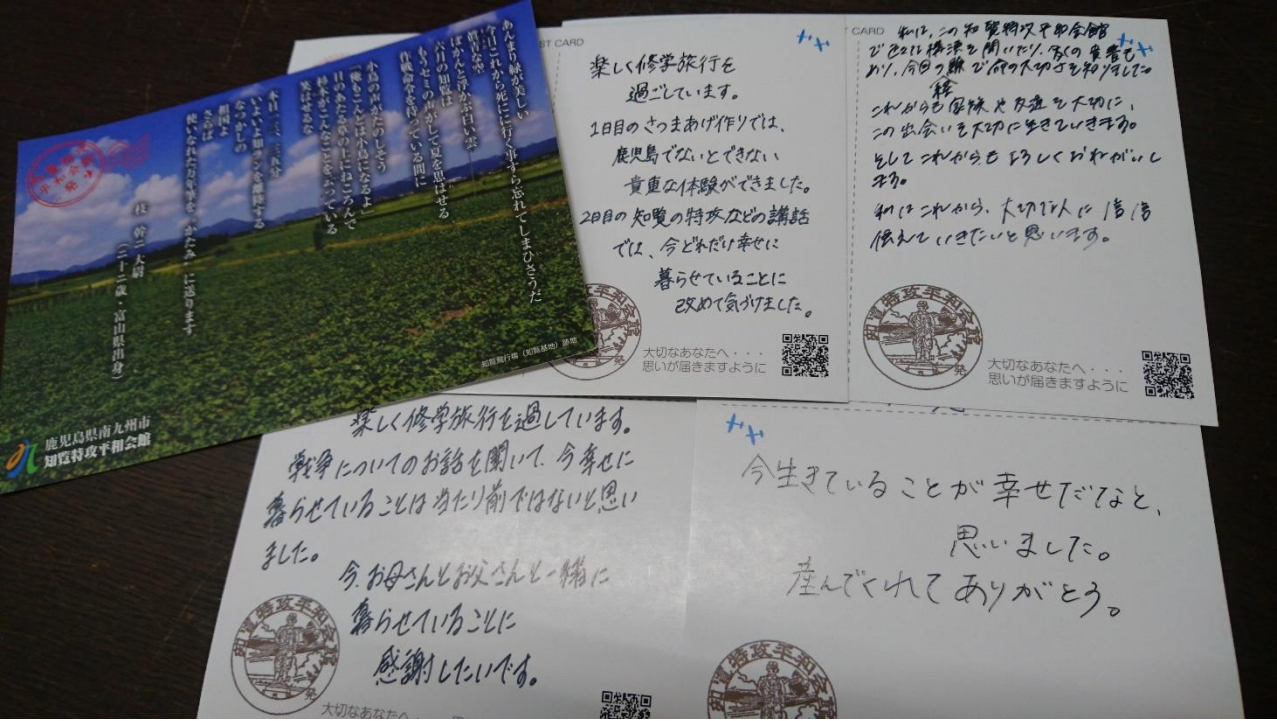 あんまり緑が美しい
今日これから死にに行く事すら忘れてしまひさうだ
真青な空
ぽかんと浮かぶ白い雲
六月の知覧は
もうセミの声がして夏を思はせる
作戦命令を待つてゐる間に
小鳥の声がたのしさう
「俺もこんどは小鳥になるよ」
日のあたる草の上にねころんで
杉本がこんなことを云つてゐる
笑はせるな
本日一三、三五分
いよいよ知ランを離陸する
なつかしの
祖国よ
さらば
使いなれた万年筆を"かたみ"に送ります
枝 幹二 大尉
(二十二歳・富山県出身)
知覧飛行場(知覧基地)跡地
鹿児島県南九州市
知覧特攻平和会館
ST CARD
楽しく修学旅行を
過ごしています。
1日目のさつまあげ作りでは、
鹿児島でないとできない
貴重な体験ができました。
2日目の知覧の特攻などの講話
では、今どれだけ幸せに
暮らせていることに
改めて気づけました。
大切なあなたへ・・・
思いが届きますように
CARD
私は、この知覧特攻平和会館
で 講演を聞いたり、多くの
おり、今回の で命の大切さを知りました。
これからも家族や友達を大切に、
この出会いを大切に生きていきます。
そしてこれからもよろしくおねがいし
ます。
私はこれから、大切な人に
伝えていきたいと思います。
知覧特攻平和会館
大切なあなたへ・・・
思いが届きますように
楽しく修学旅行を過しています。
戦争についてのお話を聞いて、今幸せに
暮らせていることは当たり前ではないと思い
ました。
今、お母さんとお父さんと一緒に
暮らせていることに
感謝したいです。
知覧特攻平和会館
大切なあなたへ
今生きていることが幸せだなと、
思いました。
産んでくれてありがとう。
知覧特攻平和会館